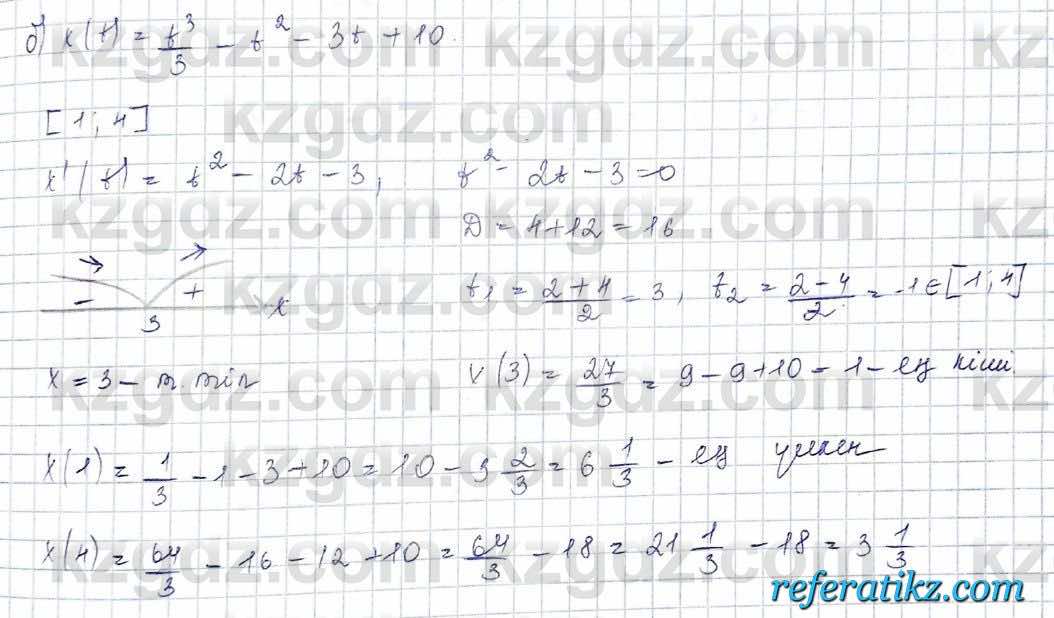 б) x(t) = t³/3 - t² - 3t + 10.
[1; 4]
x'(t) = t² - 2t - 3; t² - 2t - 3 = 0
D = 4 + 12 = 16
t₁ = (2+4)/2 = 3; t₂ = (2-4)/2 = -1 ∈ [1; 4]
- + x
3
x = 3 - m. min x(3) = 27/3 = 9 - 9 + 10 - 1 - ең кіші
x(1) = 1/3 - 1 - 3 + 10 = 10 - 3 2/3 = 6 1/3 - ең үлкен
x(4) = 64/3 - 16 - 12 + 10 = 64/3 - 18 = 21 1/3 - 18 = 3 1/3
kzgdz.com
referatikz.com